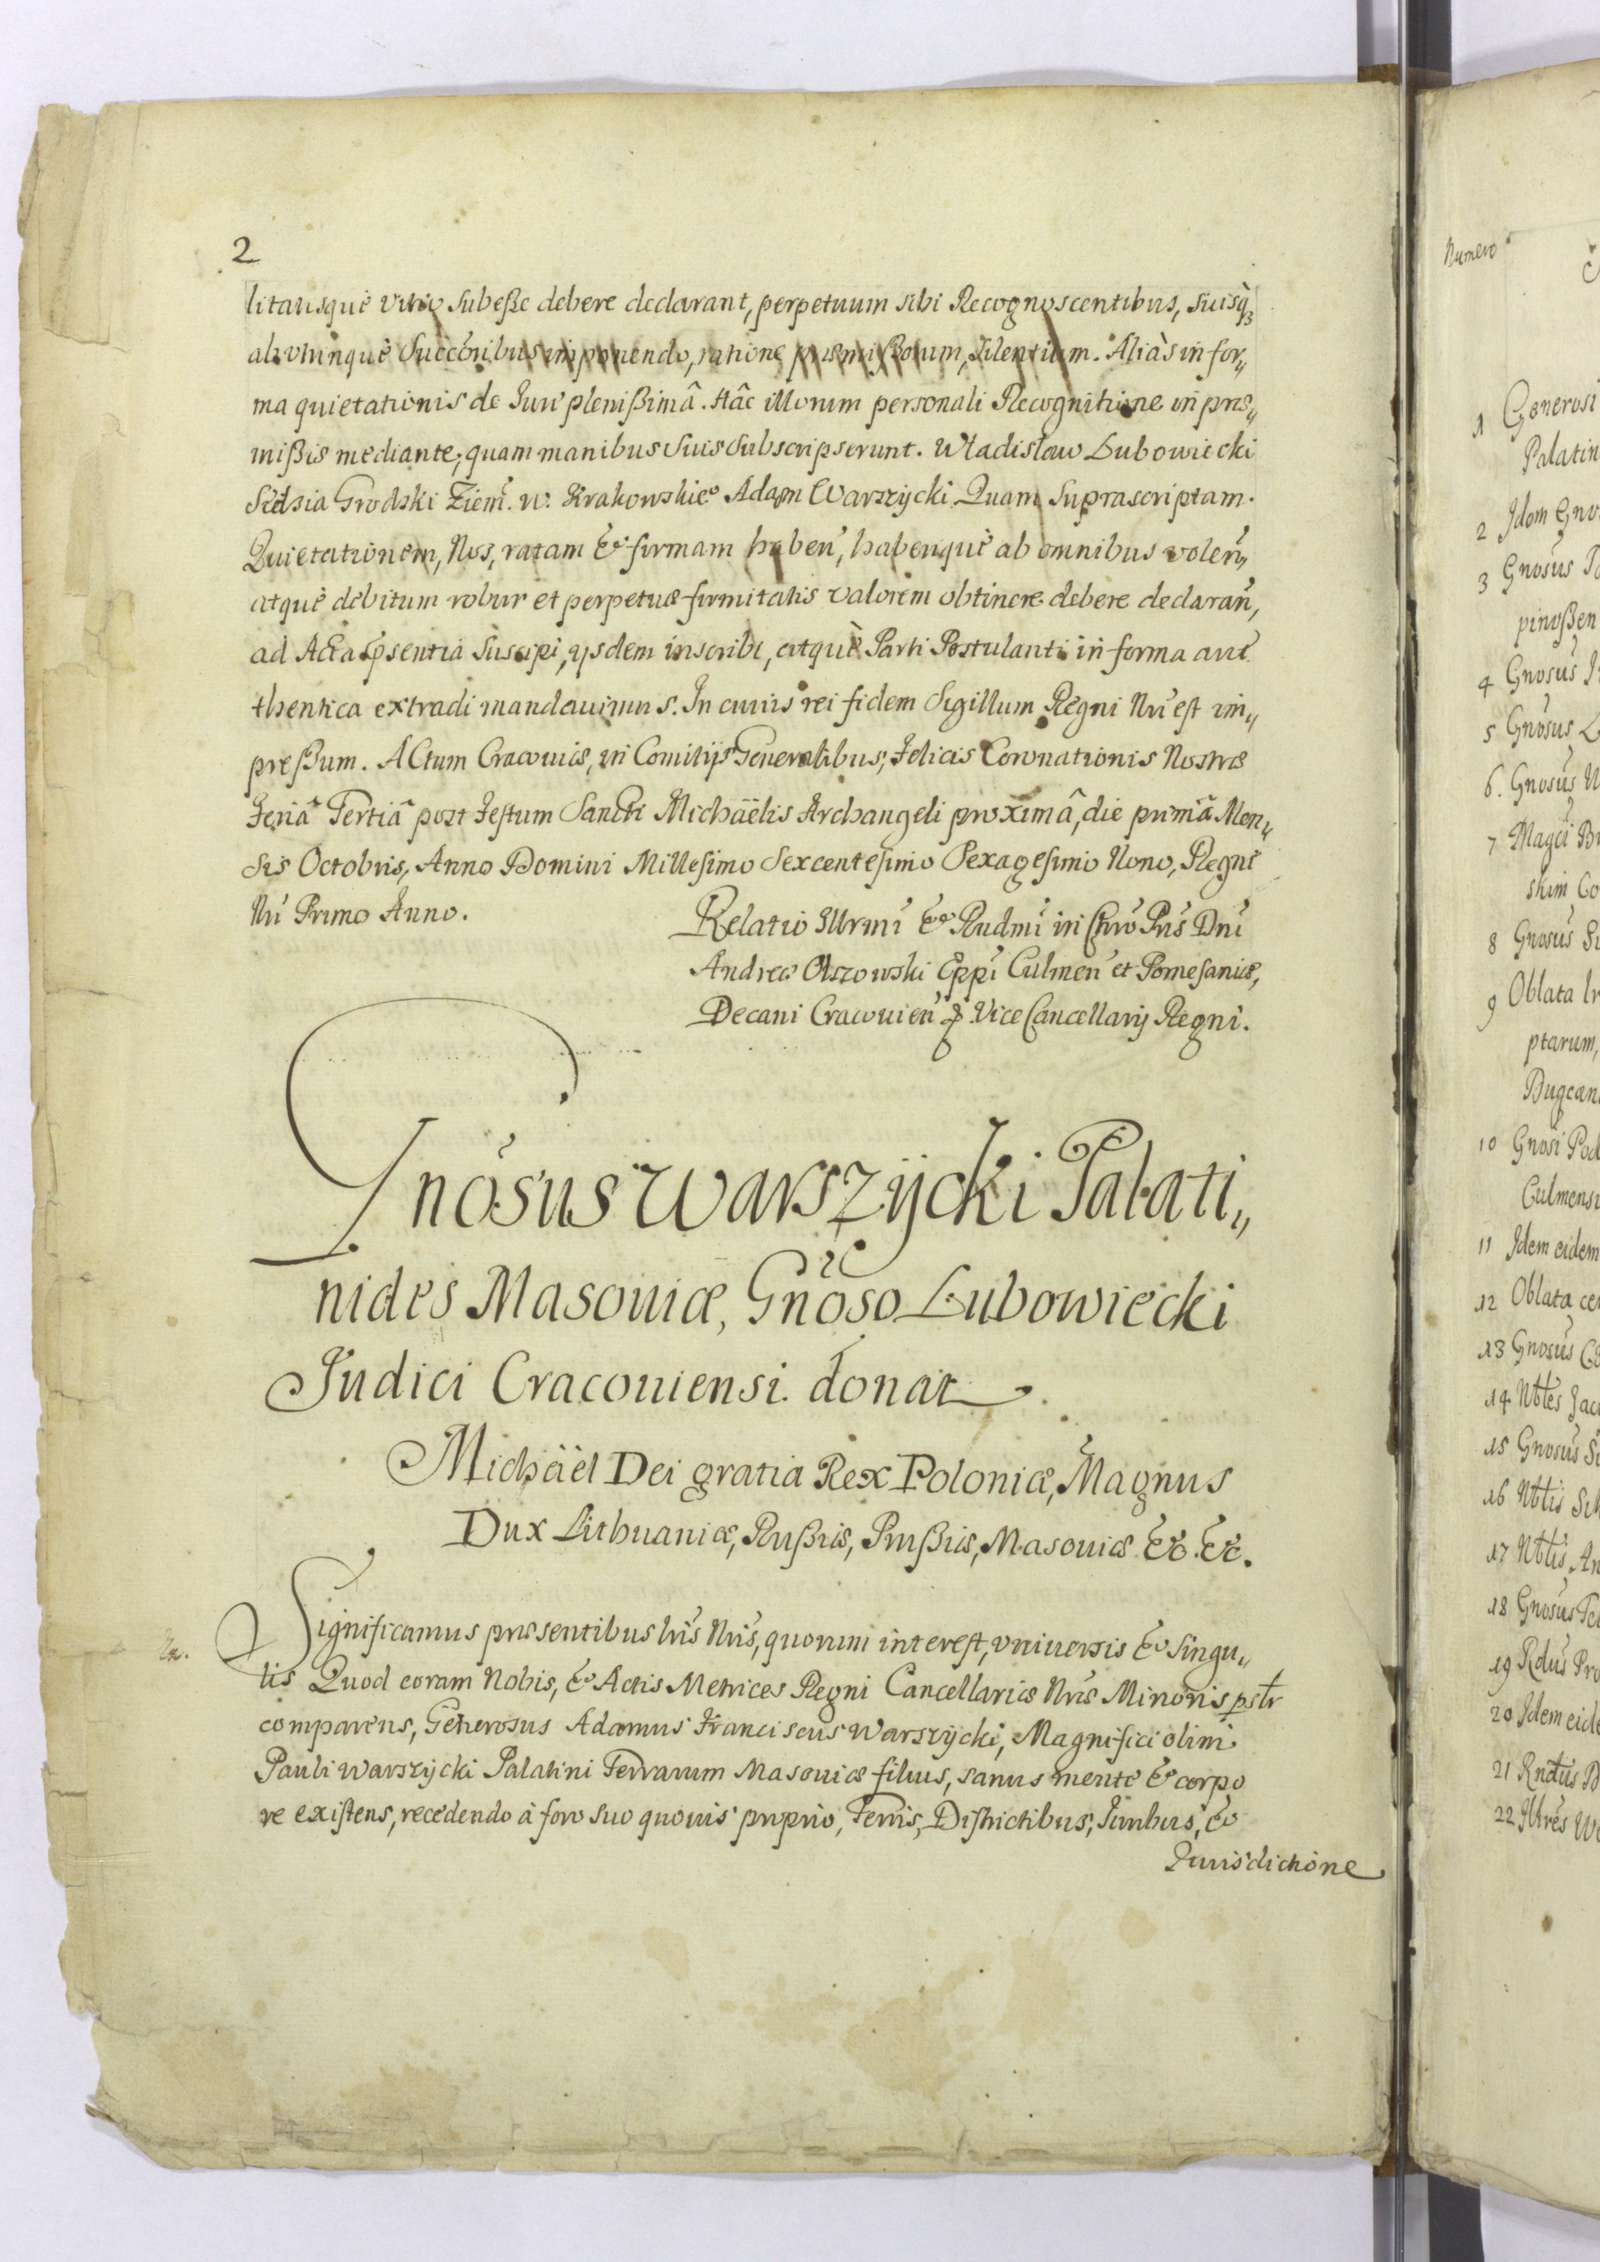 2
litatisque vitio subesse debere declarant, perpetuum sibi Recognoscentibus, suisq3
ab utrinque Succõribus imponendo, ratione præmissorum, silentium. Aliàs in for„
ma quietationis de Juri plenißimâ. Hâc illorum personali Recognitione in præ„
mißis mediante, quam manibus suis subscripserunt. Władisław Lubowiecki
Sędzia Grodski Ziem. w. Krakowskieo Adam Warszycki Quam Suprascriptam.
Quietationem, Nos, ratam & firmam haben, habequè ab omnibus volen,
atquè debitum robur et perpetuæ firmitatis valorem obtinere debere declaran,
ad Acta p̃sentia suscipi, ijsdem inscribi, atquè Parti Postulanti in forma aut
thentica extradi mandauimus. In cuius rei fidem Sigillum Regni Nri est im„
preßum. ACtum Cracouiæ, in Comitijs Generalibus, Felicis Coronationis Nostræ
Feriâ Tertiâ post Festum Sancti Michäëlis Archangeli proximâ, die primâ Men„
sis Octobris, Anno Domini Millesimo Sexcentesimo Sexagesimo Nono, Regni
Nri Primo Anno.
Relatio Illrmi & Rndmi in Chro Pris Dni
Andreæ Olszowski Eppi Culmen et Pomesaniæ,
Decani Cracouien & ViceCancellarij Regni.
Gnosus Warszÿcki Palati„
nides Masouiæ, Gnoso Lubowiecki
Judici Cracouiensi donat
Michäël Dei gratia Rex Poloniæ, Magnus
Dux Lithuaniæ, Rußiæ, Prußiæ, Masouiæ &c. &c.
Significamus præsentibus lris Nris, quorum interest, vniuersis & singu„
lis Quod coram Nobis, & Actis Metrices Regni Cancellariæ Nræ Minoris pstr
comparens, Generosus Adamus Franciscus Warszÿcki, Magnifici olim
Pauli Warszÿcki Palatini Terrarum Masouiæ filius, sanus mente & corpo
re existens, recedendo à foro suo quouis proprio, Terris, Districtibus, Juribus, &
Jurisdictione
Numero
1 Generosi
Palatin
2 Idem Gno
3 Gnosus
pinoßen
4 Gnosus
5 Gnosus
6. Gnosus
7 Magci
skim Co
8 Gnosus
9 Oblata
ptarum,
10 Gnosi Pod
Culmensi
11 Idem eidem
12 Oblata
13 Gnosus
14 Nbles
15 Gnosus
16 Nblis
17 Nblis An
18 Gnosus
19 Rdus Pro
20 Idem eide
21
22